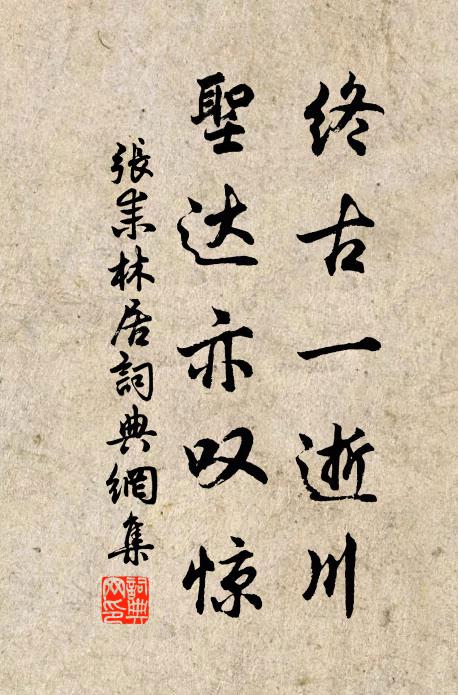 終古一逝川
聖达亦叹惊
張耒林居詞典網集
詞典网印